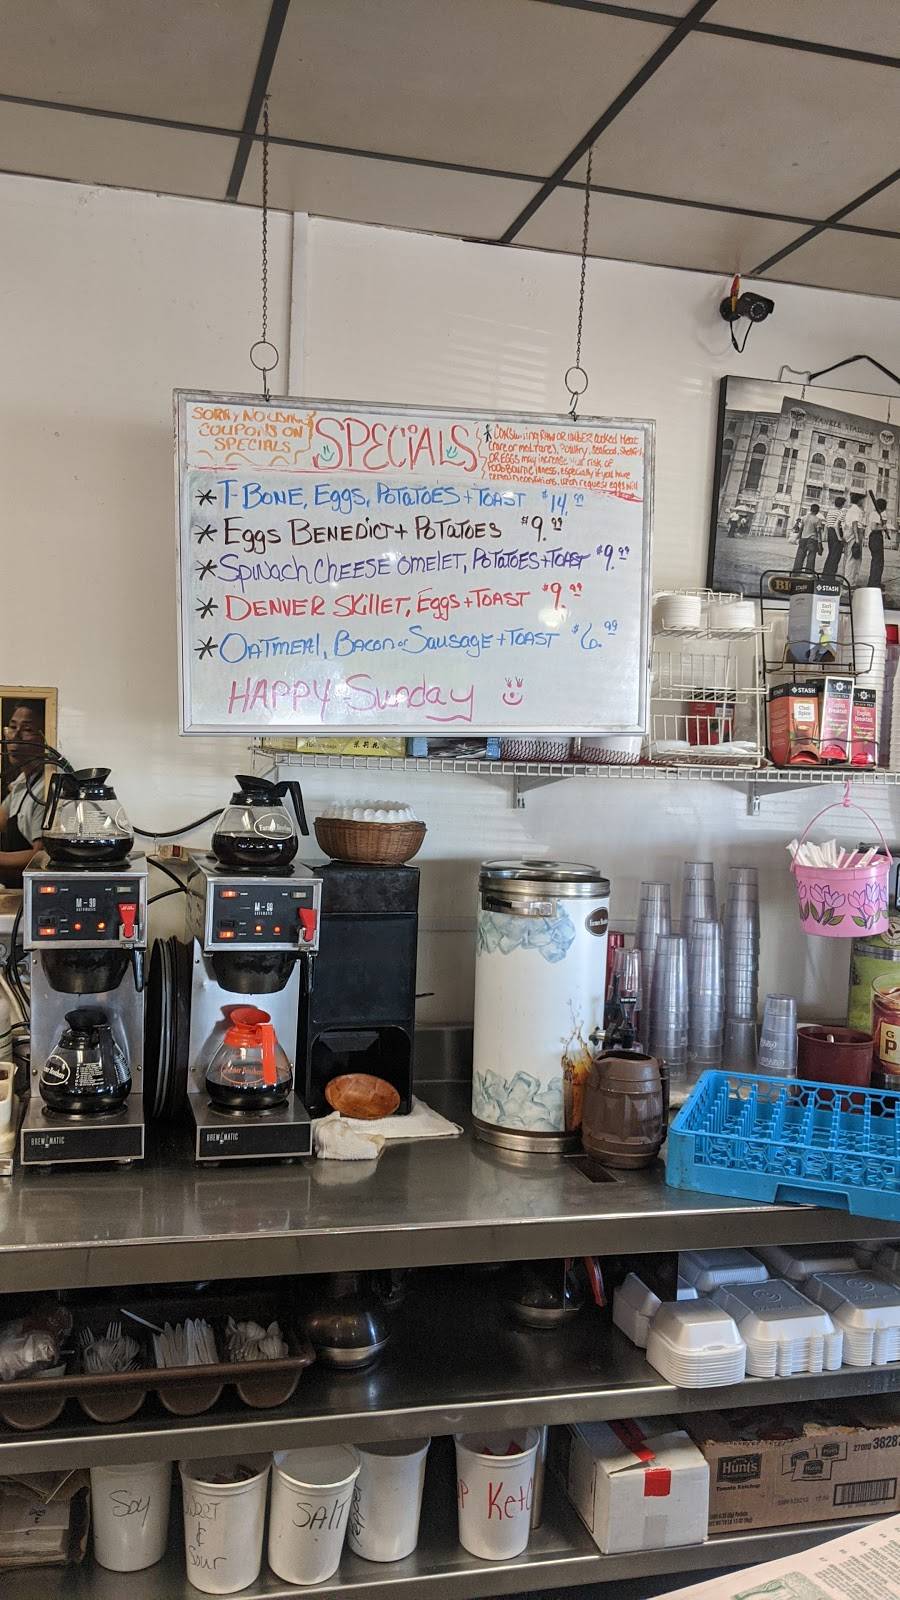 SORRY NO USING
COUPONS ON
SPECIALS
SPECIALS
* CONSUMING RAW OR UNDER COOKED MEAT
(rare or med rare), Poultry, Seafood, Shellfish
OR EGGS may increase your risk of
FOODBOURNE illness, especially if you have
* T-BONE, Eggs, POTATOES + TOAST $14.99
* Eggs BENEDICT + POTATOES $9.99
* Spinach CHEESE OMELET, POTATOES + TOAST $9.99
* DENVER SKILLET, Eggs + TOAST $9.99
* OATMEAL, BACON or SAUSAGE + TOAST $6.99
HAPPY Sunday
YANKEE STADIUM
STASH
Earl Grey
STASH
Chai Spice
English Breakfast
English Breakfast
M-90
M-90
BREWMATIC
BREWMATIC
Soy
Sweet
&
Sour
SALT
Ketc
Hunt's
Tomato Ketchup
27000 3828